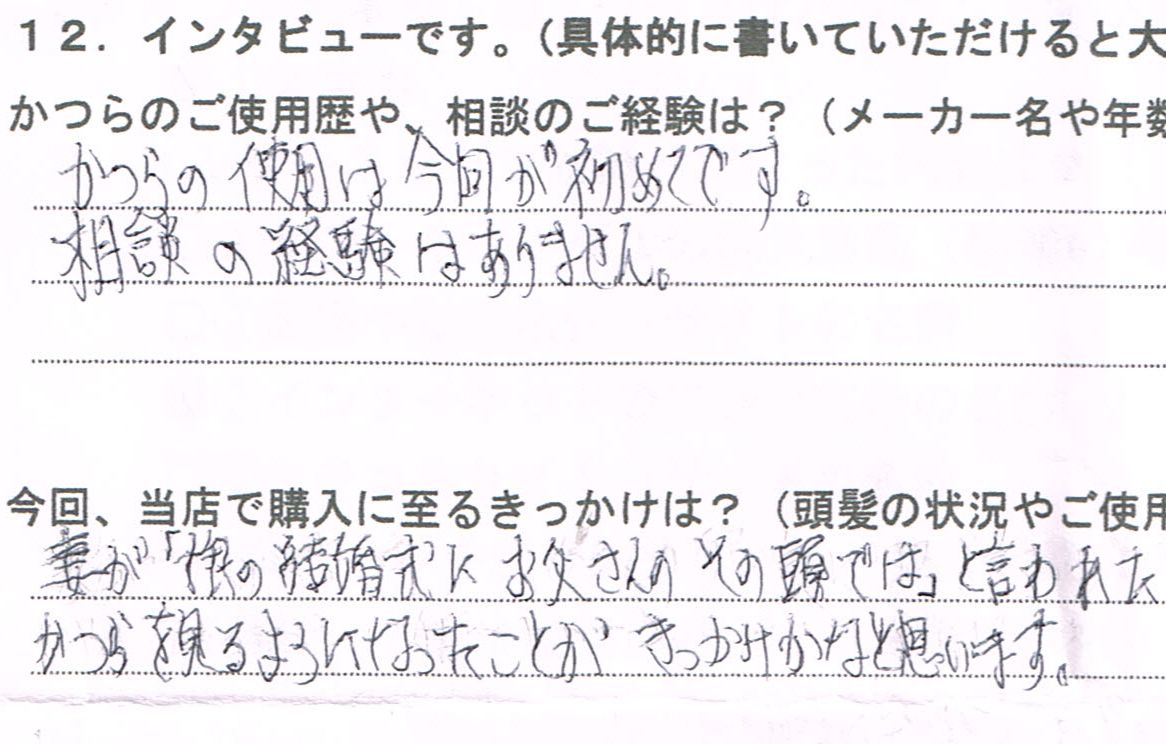 １２．インタビューです。（具体的に書いていただけると大
かつらのご使用歴や、相談のご経験は？（メーカー名や年数
かつらの使用は今回が初めてです。
相談の経験はありません。
今回、当店で購入に至るきっかけは？（頭髪の状況やご使用
妻が「娘の結婚式にお父さんのその頭では」と言われた
かつらを観るようになったことがきっかけかなと思います。